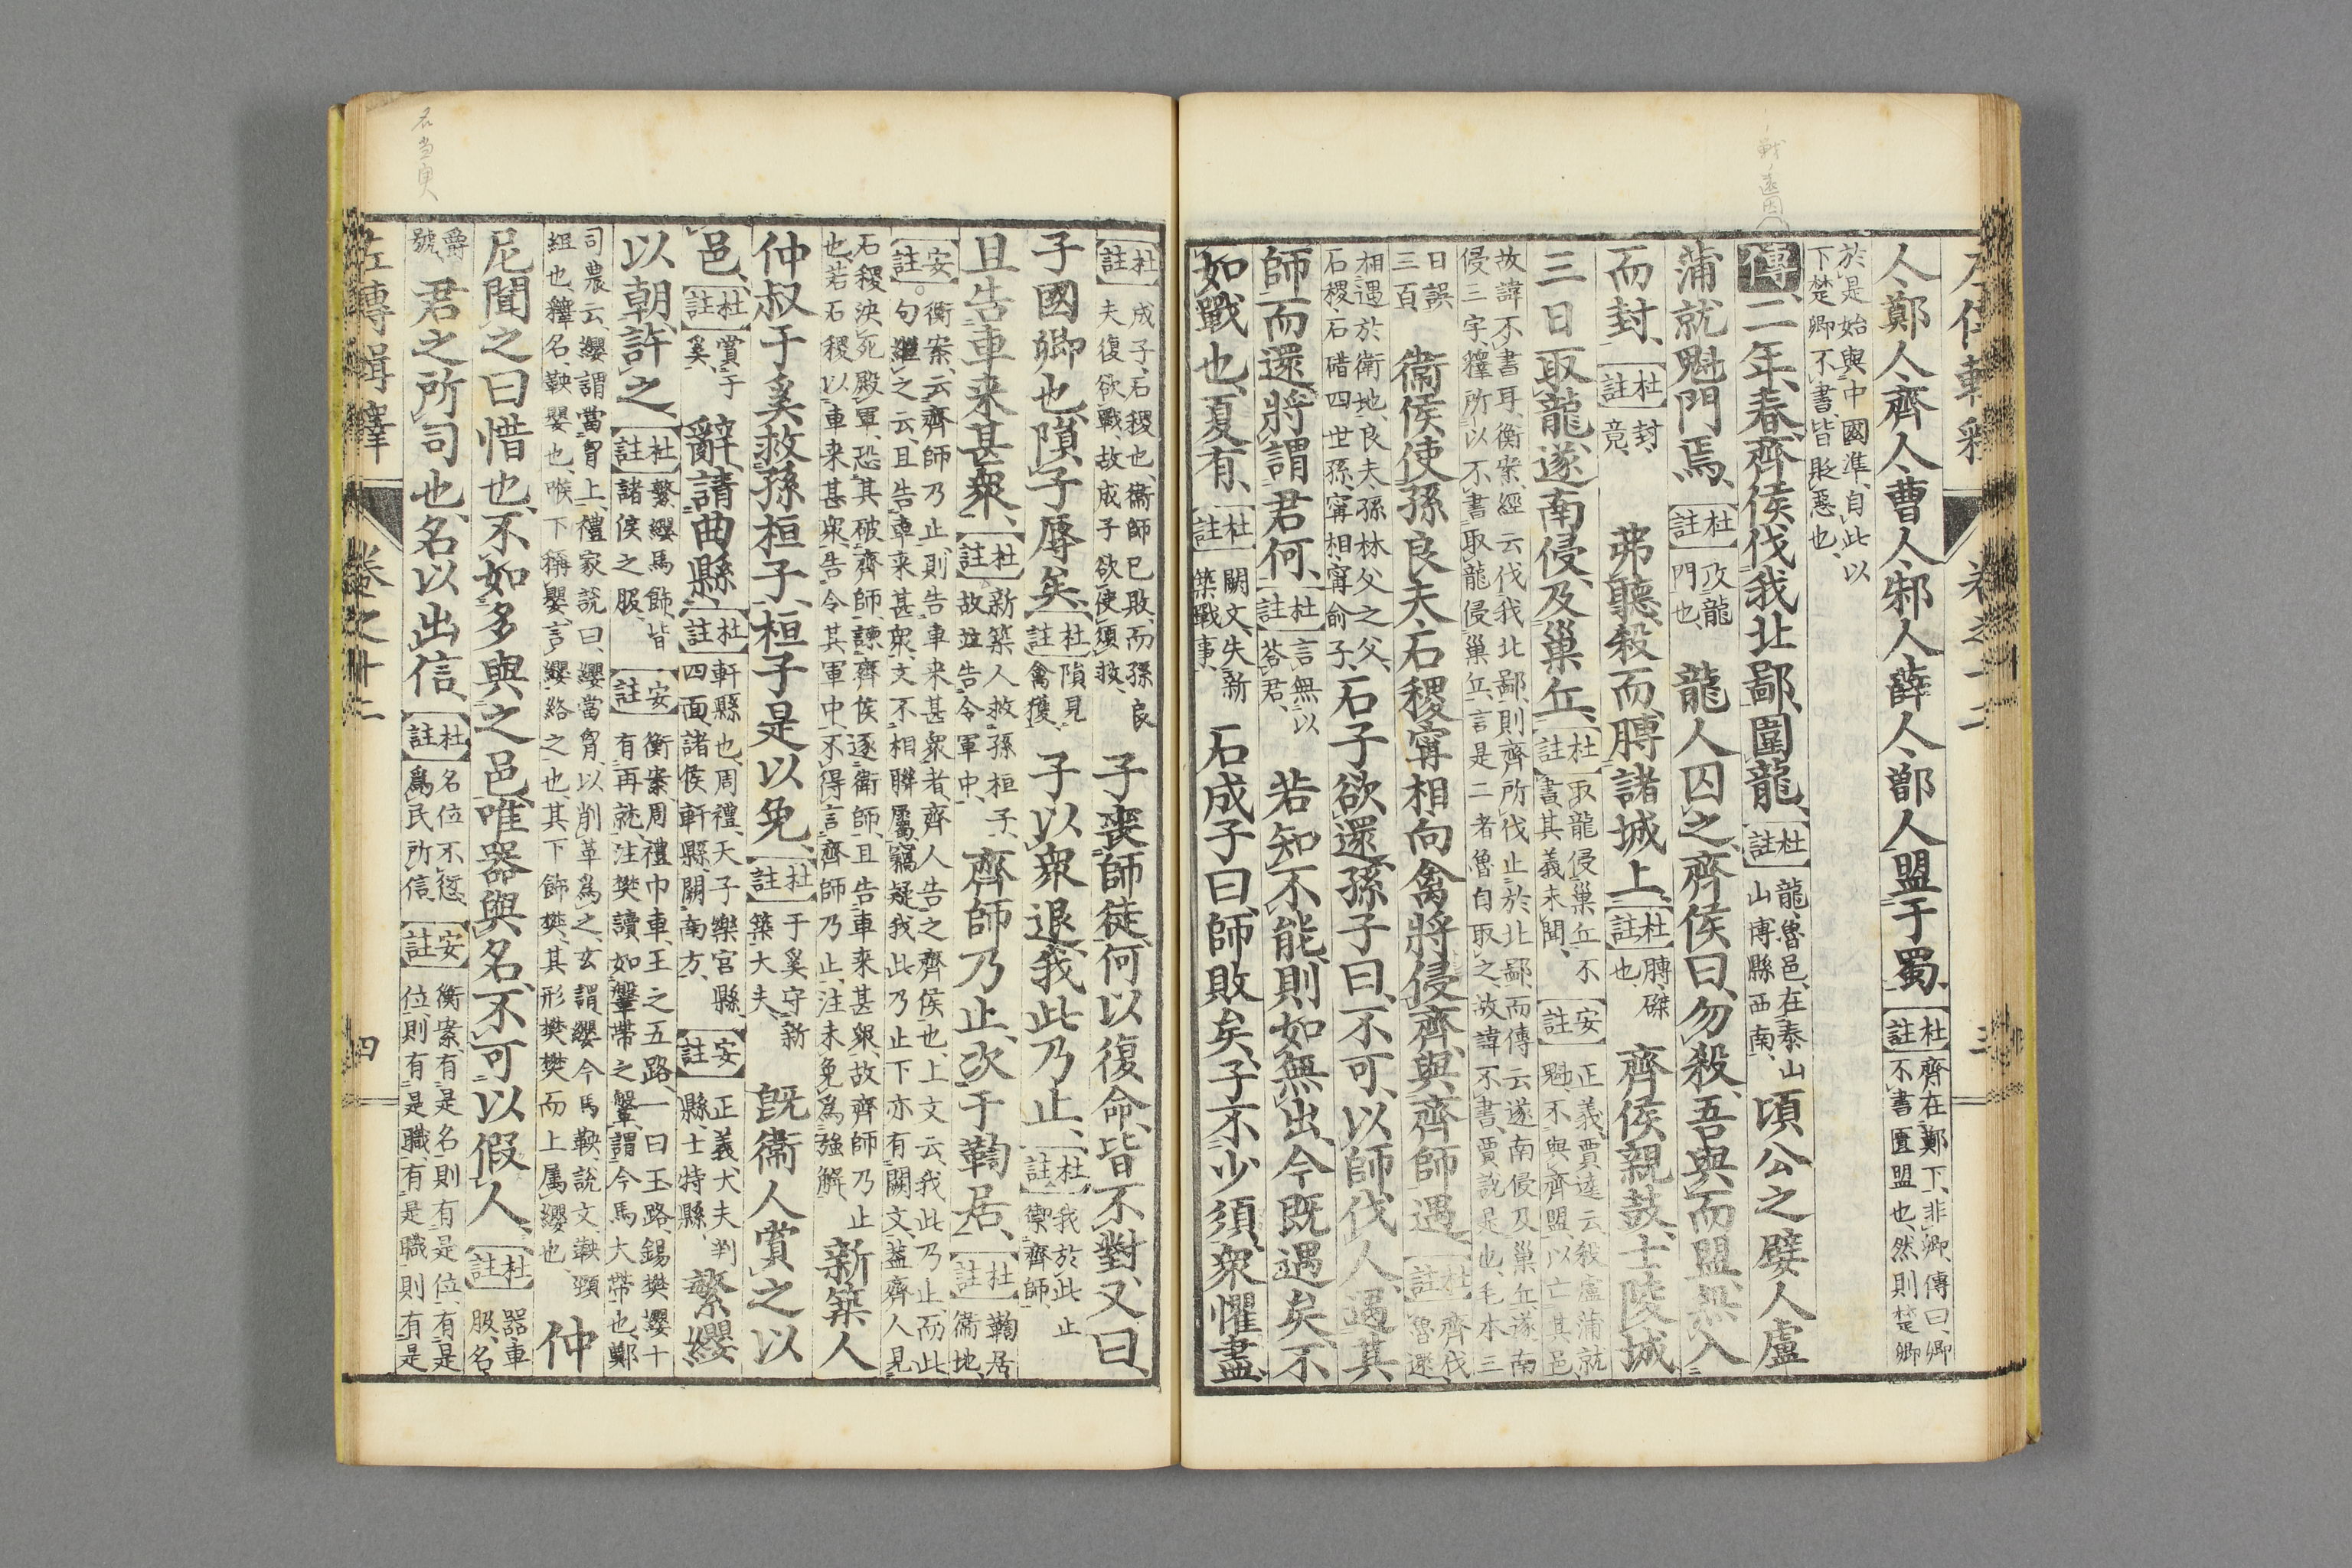 戰ノ遠因
人鄭人齊人曹人邾人薛人鄫人盟于蜀【杜註】齊在鄭下、非卿、傳曰、卿不書匱盟也、然則楚卿
於是始與中國準、自此以下楚卿不書、皆貶惡也、
傳二年、春、齊侯伐我北鄙、圍龍、【杜註】龍、魯邑、在泰山博縣西南、頃公之嬖人盧
蒲就魁門焉、【杜註】攻龍門也、龍人囚之、齊侯曰、勿殺、吾與而盟、無入
而封、【杜註】封、竟、弗聽、殺而膊諸城上、【杜註】膊、磔也、齊侯親鼓、士陵城
三日取龍、遂南侵、及巢丘、【杜註】取龍侵巢丘不書、其義未聞、【安註】正義、賈逵云、殺盧蒲就魁、不與齊盟、以亡其邑、
故諱不書耳、衡案、經云伐我北鄙、則齊所伐止於北鄙、而傳云遂南侵及巢丘、遂南侵三字、釋所以不書取龍侵巢丘、言是二者魯自取之、故諱不書、賈說是也、毛本三
日誤三百 衞侯使孫良夫、石稷、甯相、向禽將侵齊、與齊師遇、【杜註】齊伐魯還
相遇於衛地、良夫、孫林父之父、石稷、石碏四世孫、甯相、甯俞子、石子欲還、孫子曰、不可、以師伐人、遇其
師而還、將謂君何、【杜註】言無以荅君、若知不能、則如無出、今既遇矣、不
如戰也、夏有、【杜註】闕文、失新築戰事、石成子曰、師敗矣、子不少須、衆懼盡、
卷之十二 三
【杜註】成子、石稷也、衞師已敗、而孫良夫復欲戰、故成子欲使須救、子喪師徒、何以復命、皆不對、又曰、
子國卿也、隕子辱矣、【杜註】隕見禽獲、子以衆退、我此乃止、【杜註】我於此止禦齊師、
且告車来甚衆、【杜註】新築人救孫桓子、故並告令軍中、齊師乃止、次于鞫居、【杜註】鞫居衞地、
【安註】衡案、云齊師乃止、則告車来甚衆者、齊人告之齊侯也、上文云、我此乃止、而此句繼之云、且告車来甚衆、文不相聯屬、竊疑我此乃止下亦有闕文、蓋齊人見
石稷決死殿軍、恐其破齊師、諫齊侯逐衛師、且告車来甚衆、故齊師乃止也、若石稷以車来甚衆、告令其軍中、不得言齊師乃止、注未免為強解、新築人
仲叔于奚救孫桓子、桓子是以免、【杜註】于奚守新築大夫、既衞人賞之以
邑、【杜註】賞于奚、辭、請曲縣、【杜註】軒縣也、周禮、天子樂宮縣四面、諸侯軒縣、闕南方、【安註】正義、大夫判縣、士特縣、繁纓
以朝、許之、【杜註】繁纓馬飾、皆諸侯之服、【安註】衡案、周禮巾車、王之五路、一曰玉路、錫樊纓十有再就、注樊讀如鞶帶之鞶、謂今馬大帶也、鄭
司農云、纓謂當胷、士喪禮家說曰、纓當胷、以削革為之、玄謂纓今馬鞅、說文、鞅頸組也、釋名、鞅嬰也、喉下稱嬰、言纓絡之也、其下飾樊、其形樊樊而上属纓也、仲
尼聞之曰、惜也、不如多與之邑、唯器與名、不可以假人、【杜註】器、車服、名
爵號、君之所司也、名以出信、【杜註】名位不愆、爲民所信、【安註】衡案、有是名則有是位、有是位、則有是職、有是職則有是
左傳輯釋 卷之十二 四